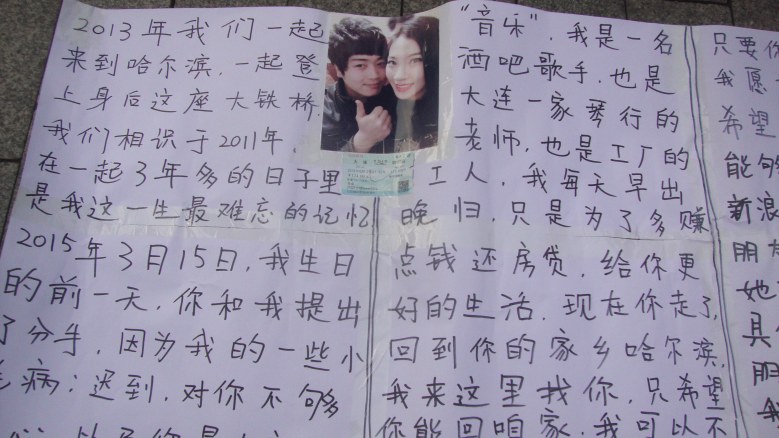 2013年我们一起
来到哈尔滨,一起登
上身后这座大铁桥.
我们相识于2011年,
在一起3年多的日子里
是我这一生最难忘的记忆
2015年3月15日,我生日
的前一天,你和我提出
了分手,因为我的一些小
毛病:迟到,对你不够
"音乐",我是一名
酒吧歌手,也是
大连一家琴行的
老师,也是工厂的
工人,我每天早出
晚归,只是为了多赚
点钱还房贷,给你更
好的生活.现在你走了,
回到你的家乡哈尔滨,
我来这里找你,只希望
你能回咱家,我可以不
只要你
我愿
希望
能够
新浪
朋
她
具
朋
我